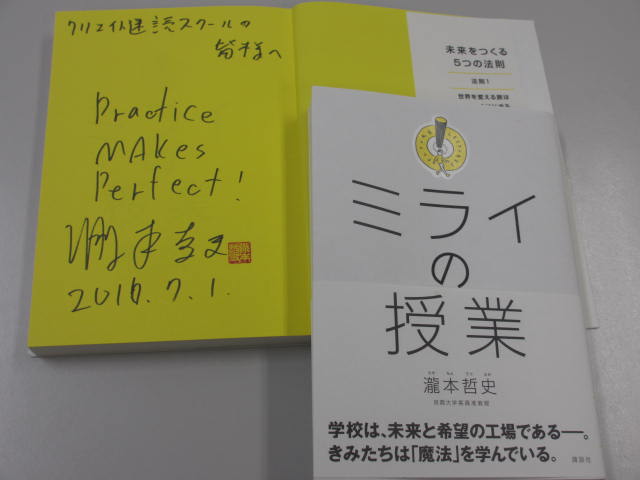 クリエイト速読スクールの
皆様へ
Practice
MAKes
Perfect!
瀧本哲史
2016.7.1.
未来をつくる
5つの法則
法則1
世界を変える旅は
ミライ
の
授業
瀧本哲史
京都大学客員准教授
学校は、未来と希望の工場である──。
きみたちは「魔法」を学んでいる。
講談社